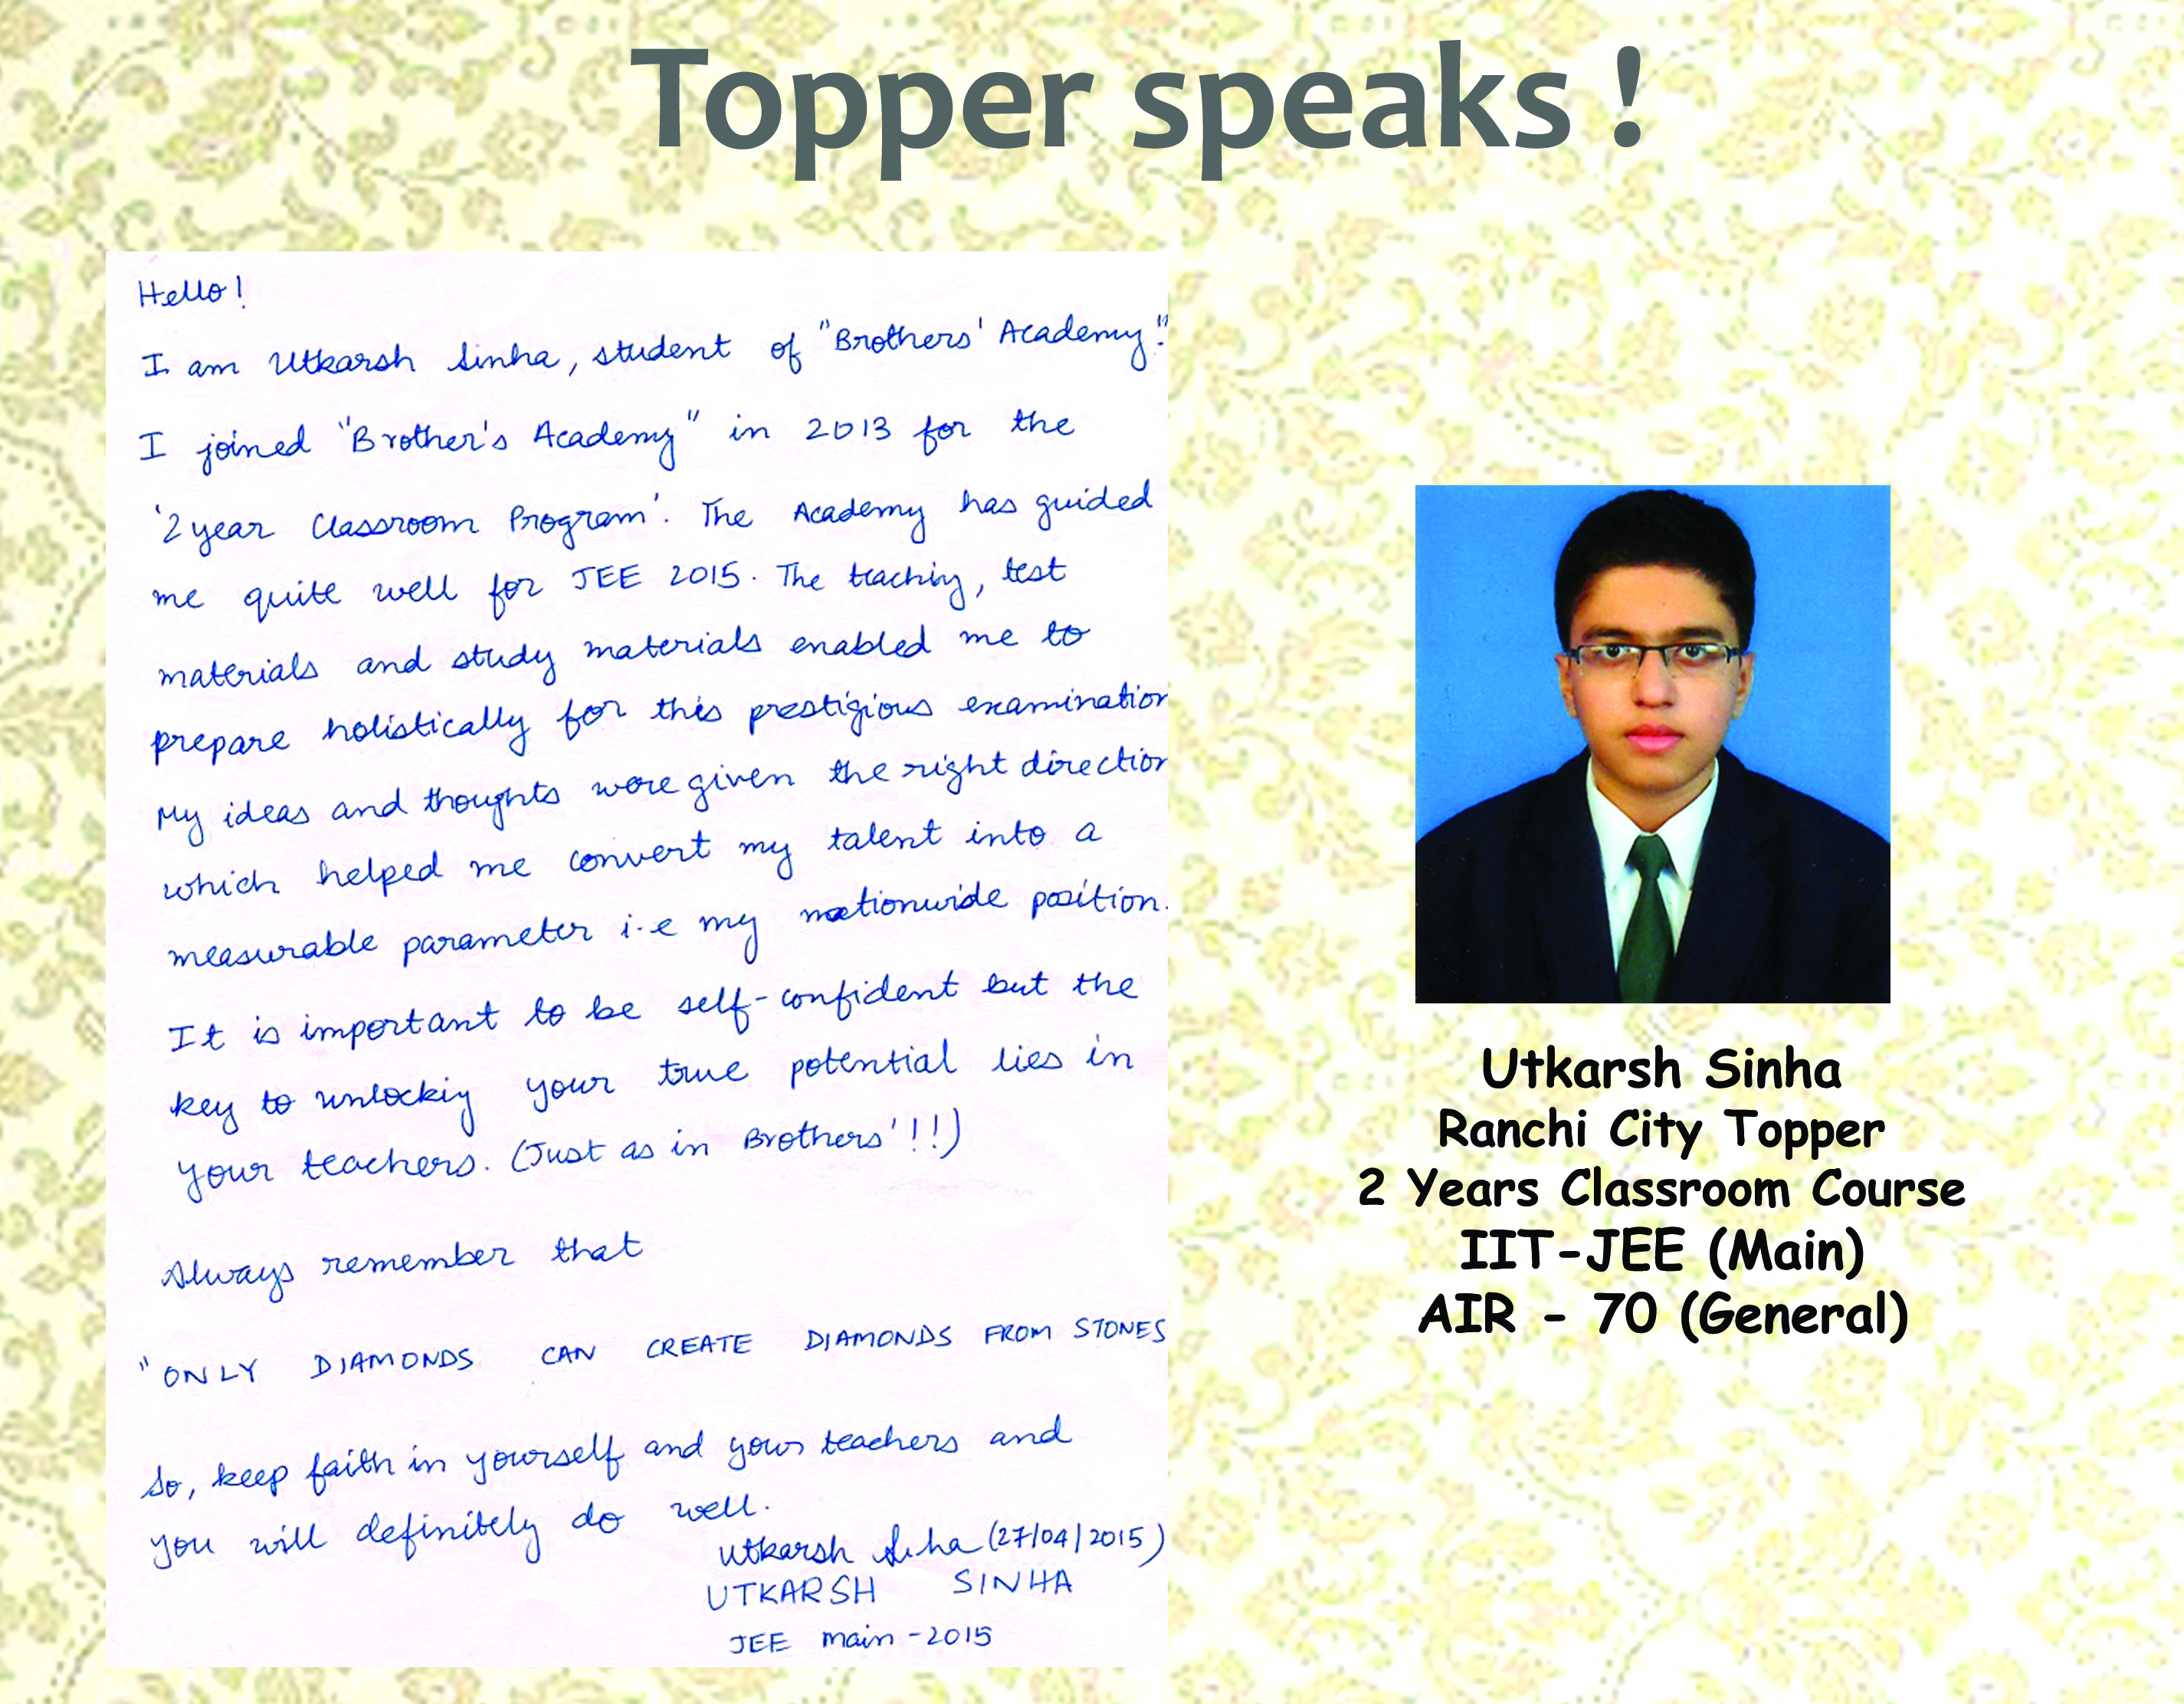 Topper speaks !
Hello!
I am Utkarsh Sinha, student of "Brothers' Academy".
I joined "Brother's Academy" in 2013 for the
'2 year Classroom Program'. The Academy has guided
me quite well for JEE 2015. The teaching, test
materials and study materials enabled me to
prepare holistically for this prestigious examination
My ideas and thoughts were given the right direction
which helped me convert my talent into a
measurable parameter i.e my nationwide position.
It is important to be self-confident but the
key to unlocking your true potential lies in
your teachers. (Just as in Brothers'!!)
Always remember that
"ONLY DIAMONDS CAN CREATE DIAMONDS FROM STONES
So, keep faith in yourself and your teachers and
you will definitely do well.
Utkarsh Sinha (27/04/2015)
UTKARSH SINHA
JEE main-2015
Utkarsh Sinha
Ranchi City Topper
2 Years Classroom Course
IIT-JEE (Main)
AIR - 70 (General)